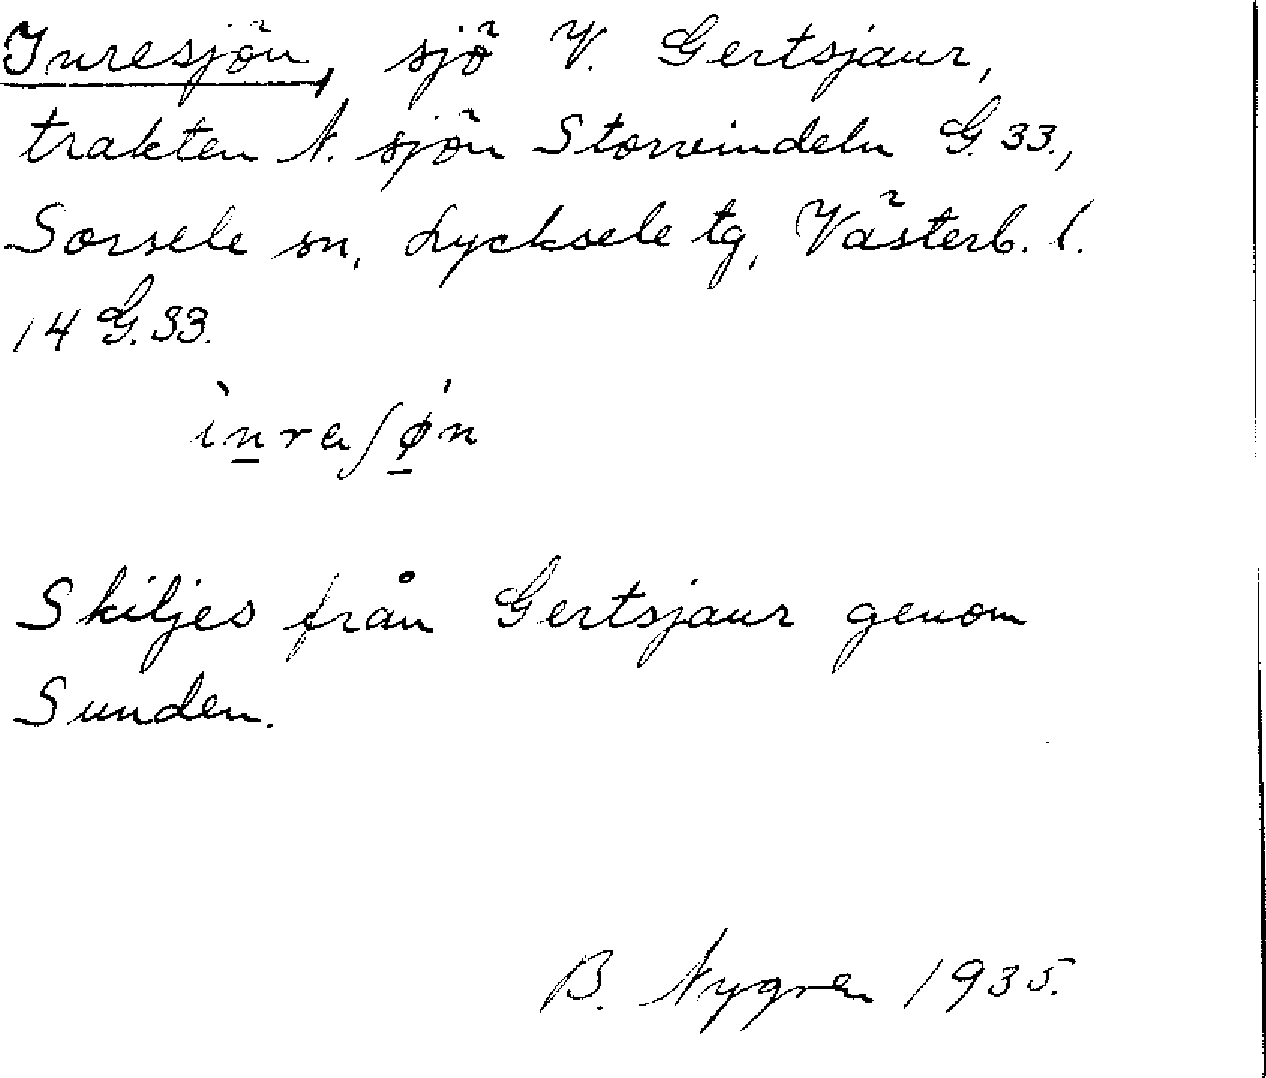 Inresjön, sjö V. Gertsjaur,
trakten N. sjön Storvindeln G. 33.,
Sorsele sn, Lycksele tg, Västerb. l.
14 G. 33.
ìn̲raʃǿ̲n
Skiljes från Gertsjaur genom
Sunden.
B. Nygren 1935.